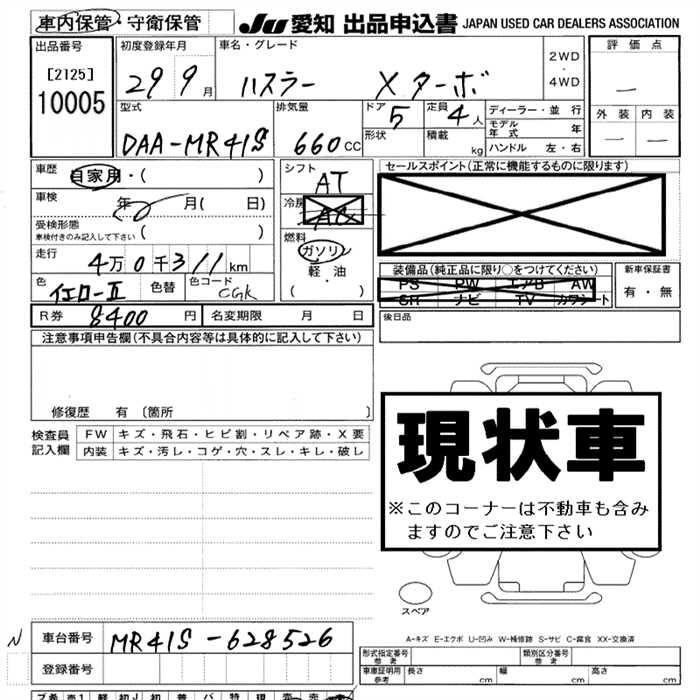 車内保管・守衛保管 JU 愛知 出品申込書 JAPAN USED CAR DEALERS ASSOCIATION
出品番号 初度登録年月 車名・グレード 2WD・4WD 評価点
[2125] 29 9月 ハスラー Xターボ —
10005
型式 排気量 ドア 5 定員 4人 ディーラー・並行 外装 内装
DAA-MR41S 660cc 形状 積載 kg モデル年式 年 — —
ハンドル 左・右
車歴 自家用・( ) シフト AT セールスポイント(正常に機能するものに限ります)
車検 年 月( 日) 冷房 AC
受検形態 ( )
車検付きのみ記入して下さい
燃料 ガソリン・軽油 ( ・ )
走行 4万0千311km 装備品(純正品に限り○をつけてください) 新車保証書
色 イエローII 色替 色コード CGK PS PW エアB AW 有・無
SR ナビ TV カワシート
R券 8400円 名変期限 月 日 後日品
注意事項申告欄(不具合内容等は具体的に記入して下さい)
修復歴 有〔箇所 〕
現状車
※このコーナーは不動車も含み
ますのでご注意下さい
検査員 FW キズ・飛石・ヒビ割・リペア跡・X要
記入欄 内装 キズ・汚レ・コゲ・穴・スレ・キレ・破レ
スペア
A-キズ E-エクボ U-凹み W-補修跡 S-サビ C-腐食 XX-交換済
N 車台番号 MR41S-628526
登録番号
形式指定番号 参考 類別区分番号 参考
車庫証明用 参考 長さ cm 幅 cm 高さ cm